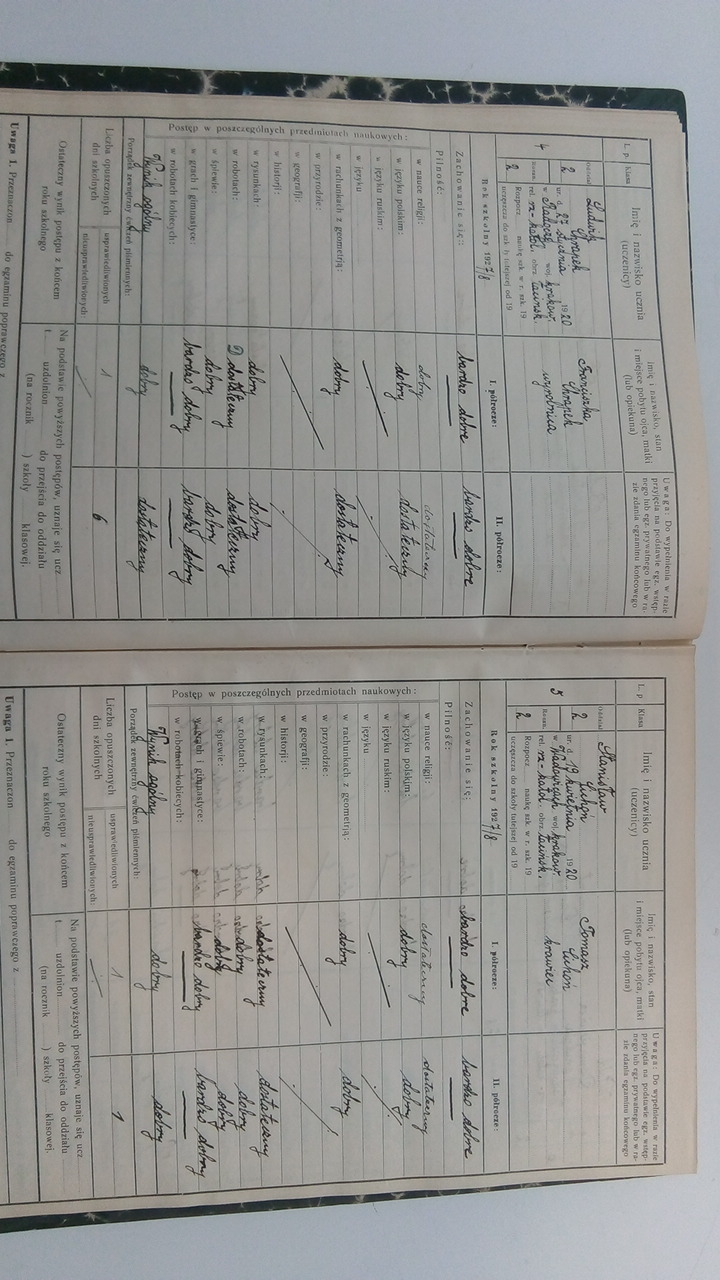 L. p.
Klasa
Imię i nazwisko ucznia
(uczenicy)
Imię i nazwisko, stan
i miejsce pobytu ojca, matki
(lub opiekuna)
Uwaga: Do wypełnienia w razie
przyjęcia na podstawie egz. wstęp-
nego lub egz. prywatnego lub w ra-
zie zdania egzaminu końcowego
4
Oddział
2
Ludwik
ur. d. 27 stycznia 1920
woj. krakow.
rel. rz-katol. obrz. łacińsk.
2
Rozpocz. naukę szk. w r. szk. 19
uczęszcza do szkoły tutejszej od 19
Franciszka
wyrobnica
Rok szkolny 1927/8
I. półrocze:
II. półrocze:
Zachowanie się:
bardzo dobre
bardzo dobre
Pilność:
Postęp w poszczególnych przedmiotach naukowych:
w nauce religji:
dobry
dostateczny
w języku polskim:
dobry
dostateczny
w języku ruskim:
w języku
w rachunkach z geometrją:
dobry
dostateczny
w przyrodzie:
w geografji:
w historji:
w rysunkach:
dobry
dobry
w robotach:
dostateczny
dostateczny
w śpiewie:
dobry
dobry
w grach i gimnastyce:
bardzo dobry
bardzo dobry
w robotach kobiecych:
Wynik ogólny
dobry
dostateczny
Porządek zewnętrzny ćwiczeń piśmiennych:
Liczba opuszczonych
dni szkolnych
usprawiedliwionych
1
6
nieusprawiedliwionych:
Ostateczny wynik postępu z końcem
roku szkolnego
Na podstawie powyższych postępów, uznaje się ucz
t. uzdolnion do przejścia do oddziału
(na rocznik ) szkoły klasowej.
Uwaga 1. Przeznaczon do egzaminu poprawczego z
L. p.
Klasa
Imię i nazwisko ucznia
(uczenicy)
Imię i nazwisko, stan
i miejsce pobytu ojca, matki
(lub opiekuna)
Uwaga: Do wypełnienia w razie
przyjęcia na podstawie egz. wstęp-
nego lub egz. prywatnego lub w ra-
zie zdania egzaminu końcowego
5
Oddział
2
Stanisław
Luhoń
ur. d. 19 kwietnia 1920
w woj. krakow.
rel. rz-katol. obrz. łacińsk.
2
Rozpocz. naukę szk. w r. szk. 19
uczęszcza do szkoły tutejszej od 19
Tomasz
Luhoń
krawiec
Rok szkolny 1927/8
I. półrocze:
II. półrocze:
Zachowanie się:
bardzo dobre
bardzo dobre
Pilność:
Postęp w poszczególnych przedmiotach naukowych:
w nauce religji:
dostateczny
dostateczny
w języku polskim:
dobry
dobry
w języku ruskim:
w języku
w rachunkach z geometrją:
dobry
dobry
w przyrodzie:
w geografji:
w historji:
w rysunkach:
dostateczny
dostateczny
w robotach:
dobry
dobry
w śpiewie:
dobry
dobry
w grach i gimnastyce:
bardzo dobry
bardzo dobry
w robotach kobiecych:
Wynik ogólny
dobry
dobry
Porządek zewnętrzny ćwiczeń piśmiennych:
Liczba opuszczonych
dni szkolnych
usprawiedliwionych
1
1
nieusprawiedliwionych:
Ostateczny wynik postępu z końcem
roku szkolnego
Na podstawie powyższych postępów, uznaje się ucz
t. uzdolnion do przejścia do oddziału
(na rocznik ) szkoły klasowej.
Uwaga 1. Przeznaczon do egzaminu poprawczego z